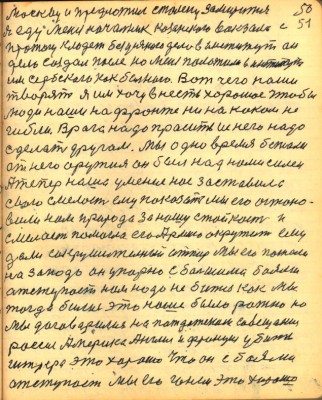 50
Москву и предпочтил столицу замирится 51
Я еду меня начальник казанского вокзала с
протоку кладет без единого дело в институт он
дело создал после но меня положили в институт
им Сербского как больного. Вот чего наши
творят я им хочу внесть хорошее чтобы
люди наши на фронте ни на каком не
гибли. Врага надо простить и него надо
сделать другом. Мы одно время бежали
от него оружия он был над нами силен
А тепер наша умение нас заставило
свою смелость ему показать мы его остоно-
вили нам природа За нашу стойкость и
смелость помогла его Армию окрутит ему
дали сокрушительный отпор Мы его погнали
на запад он упорно с большими боями
отступает нам надо не битса как мы
тогда билис это наше было ратно но
Мы договарилис на совещании
росси Америка Англи и франция убить
гитлера это хорошо Что он с боями
отступает Мы его гоним это хорошо